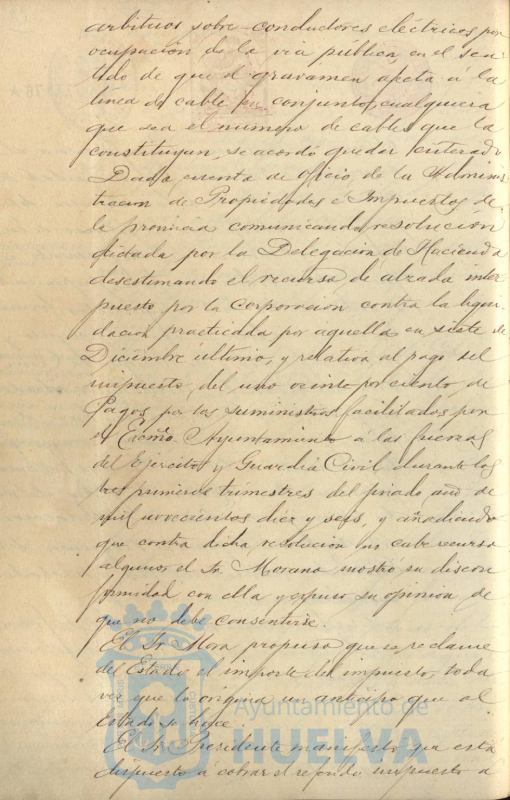 arbitrios sobre conductores eléctricos por
ocupación de la via pública, en el sen-
tido de que el gravamen afecta a la
línea de cable en conjunto, cualquiera
que sea el número de cables que la
constituyan, se acordó quedar enterado
Dada cuenta de oficio de la Adminis-
tracion de Propiedades é Impuestos de
la provincia comunicando resolución
dictada por la Delegación de Hacienda
desestimando el recurso de alzada inter
puesto por la Corporacion contra la liqui-
dacion practicada por aquella en siete de
Diciembre último, y relativa al pago del
impuesto del uno veinte por ciento, de
Pagos por los suministros facilitados por
el Excmo. Ayuntamiento á las fuerzas
del Ejercito y Guardia Civil durante los
tres primeros trimestres del pasado año de
mil novecientos diez y seis, y añadiendo
que contra dicha resolucion no cabe recurso
alguno, el Sr. Morano mostró su discon
formidad con ella y expuso su opinion de
que no debe consentirse.
El Sr. Mora propuso que se reclame
del Estado el importe del impuesto, toda
vez que lo origina un anticipo que al
Estado se hace.
El Sr. Presidente manifestó que está
dispuesto á cobrar el referido impuesto á
Ayuntamiento de
HUELVA